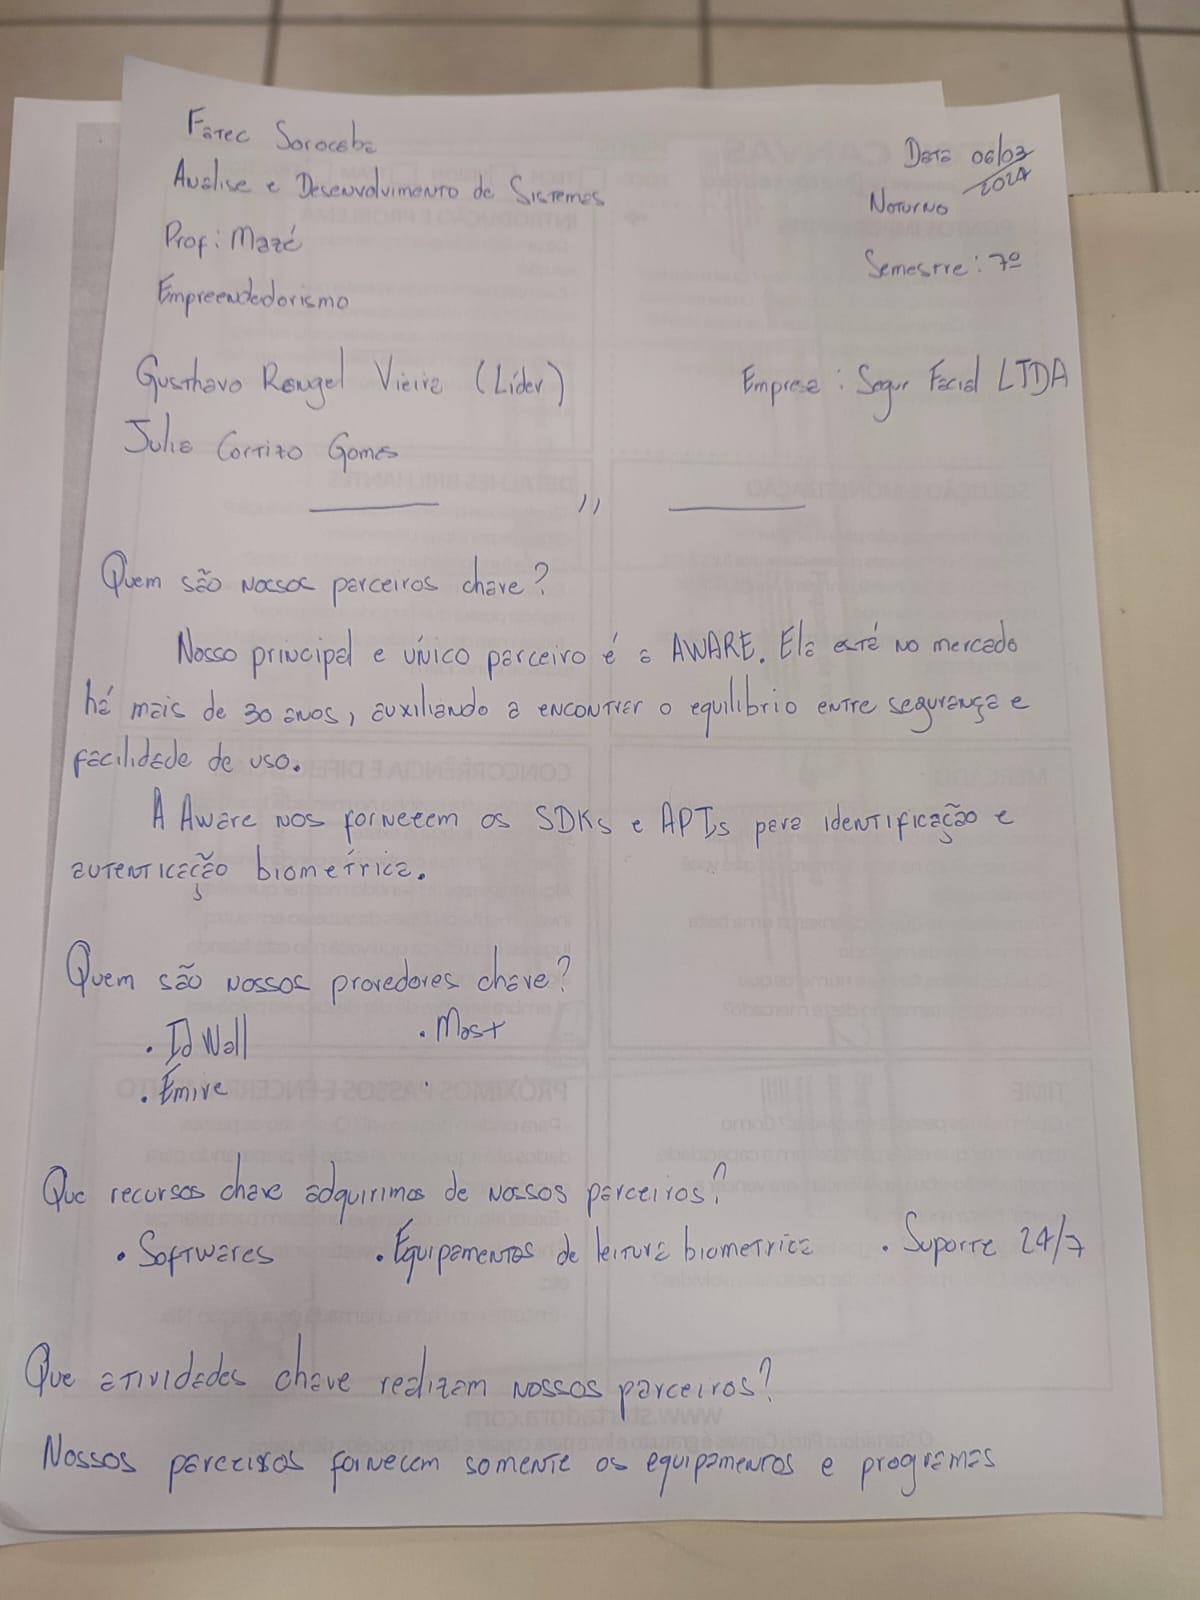 Fatec Sorocaba
Data 06/03/2024
Análise e Desenvolvimento de Sistemas
Noturno
Prof: Mazé
Semestre: 7º
Empreendedorismo
Gusthavo Rangel Vieira (Líder)
Empresa: Segur Facial LTDA
Julia Cortizo Gomes
Quem são nossos parceiros chave?
Nosso principal e único parceiro é a AWARE. Ela está no mercado
há mais de 30 anos, auxiliando a encontrar o equilíbrio entre segurança e
facilidade de uso.
A Aware nos fornecem os SDKs e APIs para identificação e
autenticação biométrica.
Quem são nossos provedores chave?
• Id Wall • Most
• Emive •
Que recursos chave adquirimos de nossos parceiros?
• Softwares • Equipamentos de leitura biometrica • Suporte 24/7
Que atividades chave realizam nossos parceiros?
Nossos parceiros fornecem somente os equipamentos e programas